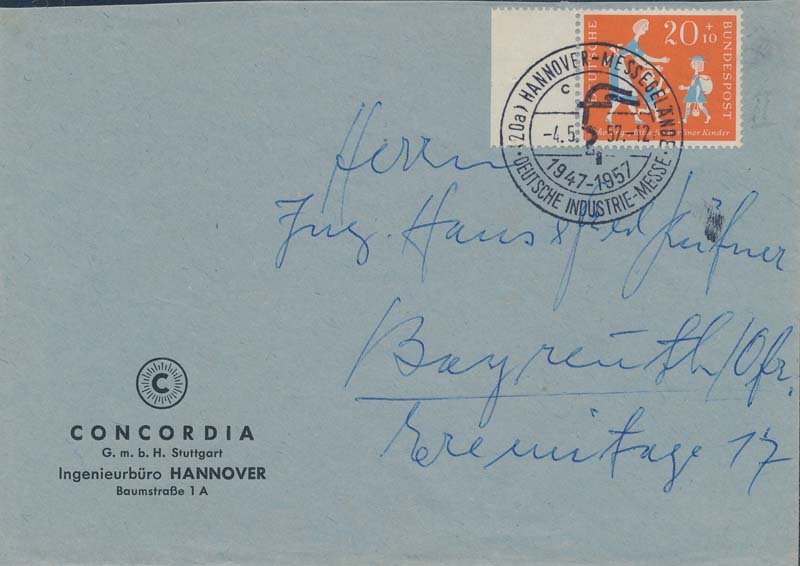 20 + 10
DEUTSCHE BUNDESPOST
(20a) HANNOVER-MESSEGELÄNDE
c
-4.5. 57.-12
1947-1957
• DEUTSCHE INDUSTRIE-MESSE •
Herrn
Ing. Hans
Bayreuth/Ofr.
Eremitage 17
C
CONCORDIA
G. m. b. H. Stuttgart
Ingenieurbüro HANNOVER
Baumstraße 1 A